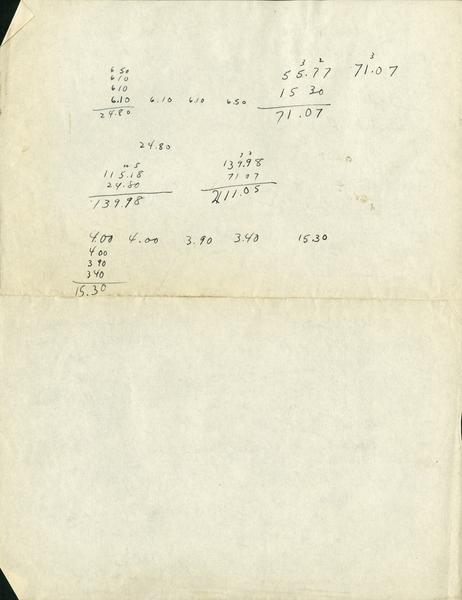 3 2 3
6.50 55.77 71.07
6.10
6.10 15 30
6.10 6.10 6.10 6.50
24.80 71.07
24.80
115.18 139.98
24.80 71 07
139.98 211.05
4.00 4.00 3.90 3.40 15.30
4 00
3 90
3 40
15.30